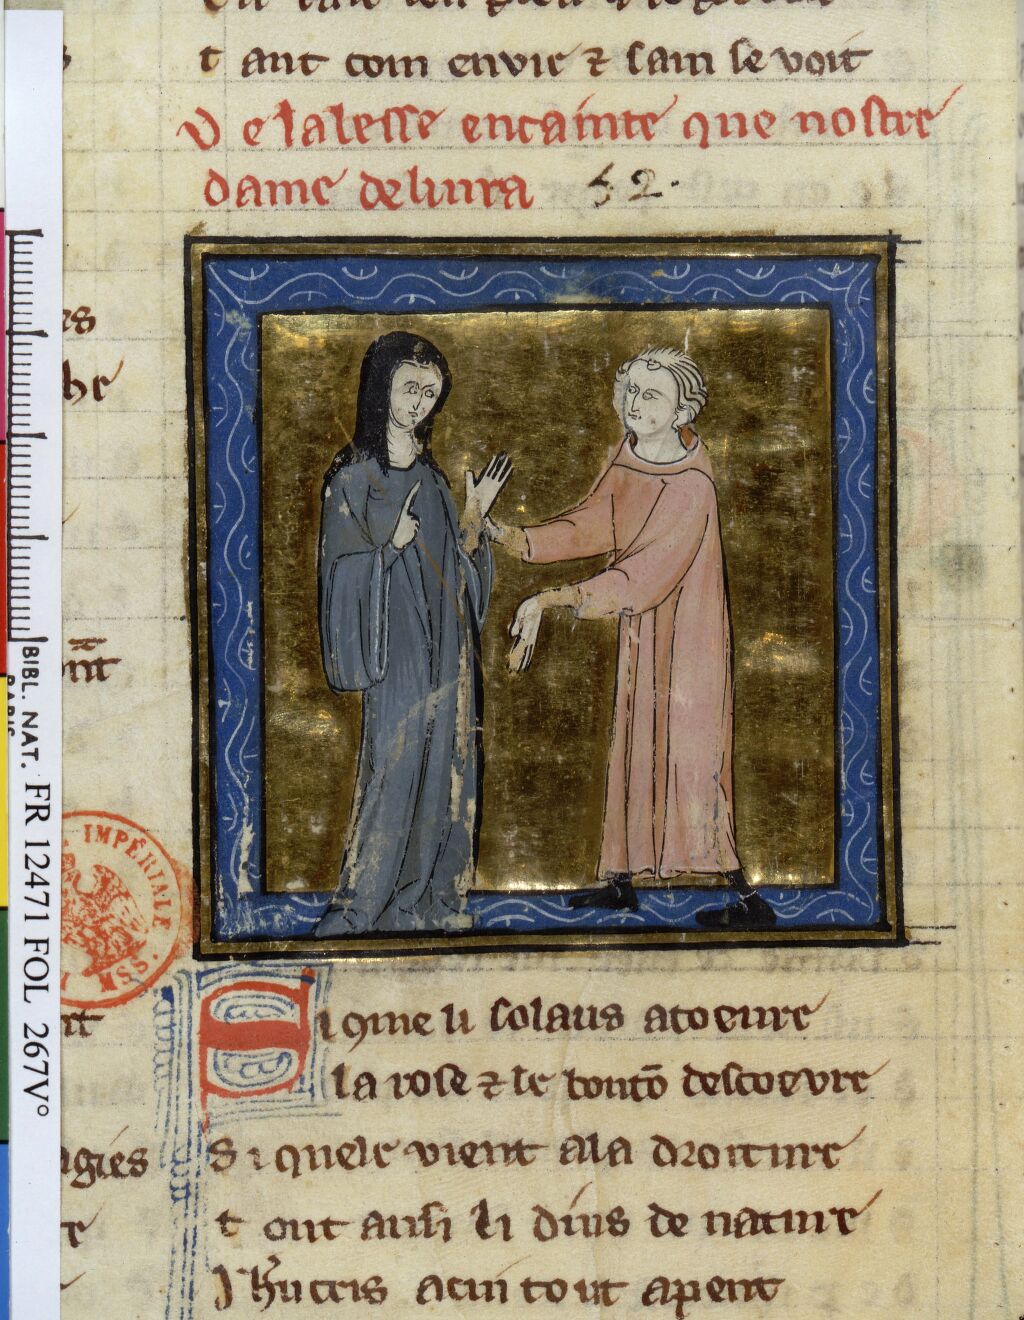 t ant com envie ⁊ sam se voit
D e labesse encainte que nostre
dame deliura 52.
es
he
ont
I que li solaus a toeure
la rose ⁊ le bontō descoevre
S i quele vient ala droiture
t out ausi li dius de nature
J hūcris a cui tout apent
agies
BIBL. NAT.
PARIS
FR 12471 FOL 267V°
IMPÉRIALE
MSS.